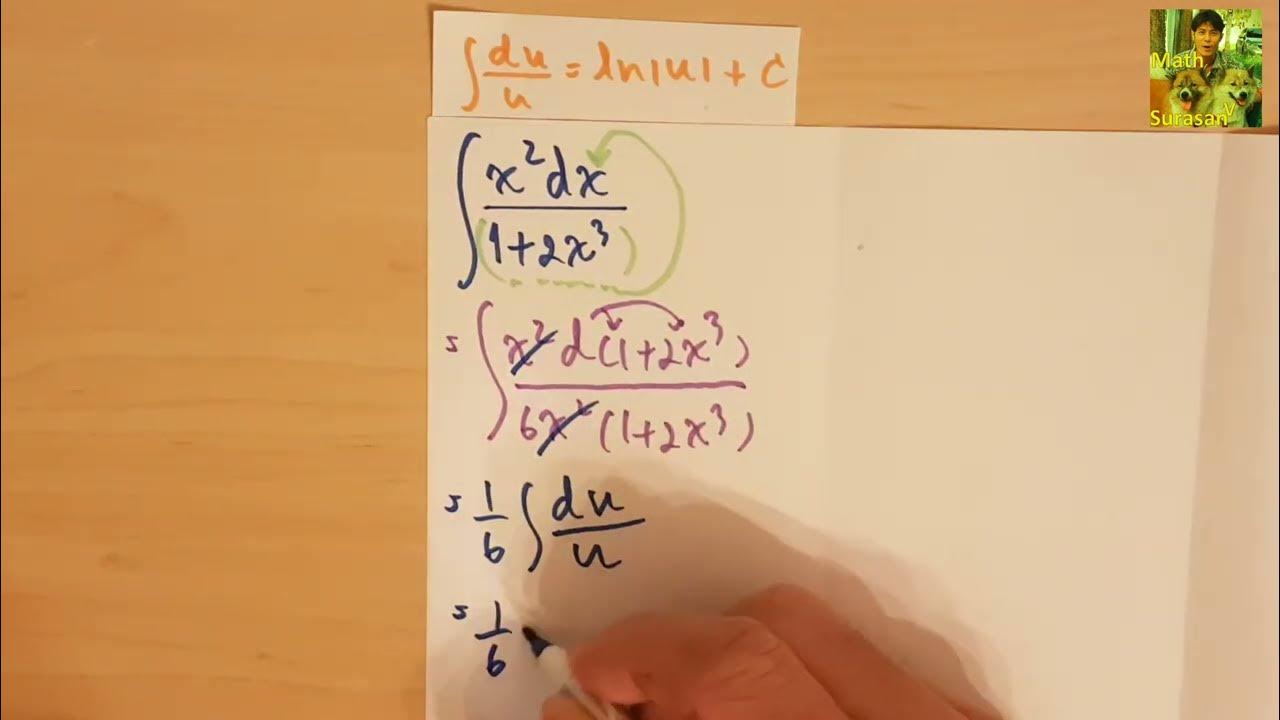 ∫ du/u = ln|u| + C
Math
Surasan y
∫ x² dx / (1+2x³)
= ∫ x² d(1+2x³) / 6x² (1+2x³)
= 1/6 ∫ du/u
= 1/6